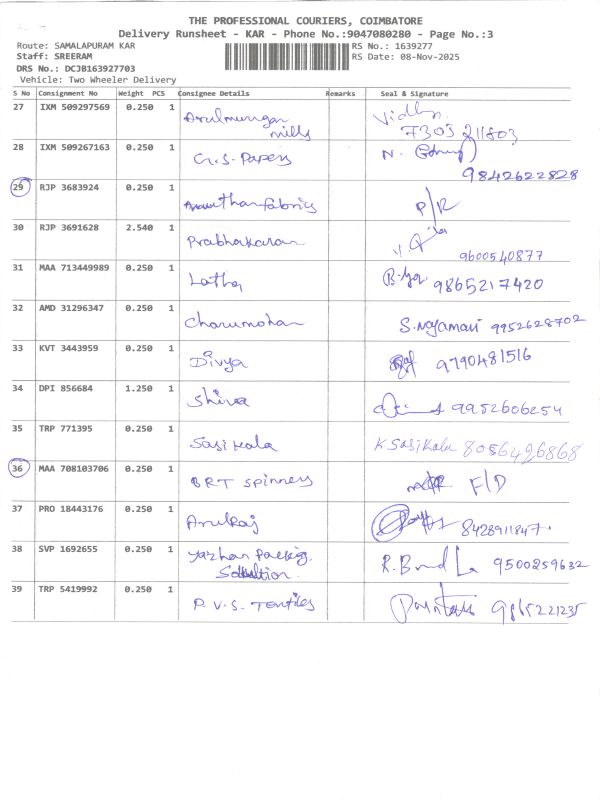 THE PROFESSIONAL COURIERS, COIMBATORE
Delivery Runsheet - KAR - Phone No.:9047080280 - Page No.:3
Route: SAMALAPURAM KAR RS No.: 1639277
Staff: SREERAM RS Date: 08-Nov-2025
DRS No.: DCJB163927703
Vehicle: Two Wheeler Delivery
S No Consignment No Weight PCS Consignee Details Remarks Seal & Signature
27 IXM 509297569 0.250 1 Arulmurugan mills Vidhy 7305 211803
28 IXM 509267163 0.250 1 G.S. Papers N. 9842622828
29 RJP 3683924 0.250 1 fabrics P/R
30 RJP 3691628 2.540 1 Prabhakaran 9600540877
31 MAA 713449989 0.250 1 Latha 9865217420
32 AMD 31296347 0.250 1 Charumohan S. Nayamani 9952628702
33 KVT 3443959 0.250 1 Divya 9790481516
34 DPI 856684 1.250 1 Shiva 9952606254
35 TRP 771395 0.250 1 Sasikala K Sasikala 8056496868
36 MAA 708103706 0.250 1 BRT Spinners F/D
37 PRO 18443176 0.250 1 Arulraj 8428911847
38 SVP 1692655 0.250 1 Yazhan Packing Solution R. 9500259632
39 TRP 5419992 0.250 1 P.V.S. Textiles 9865221235